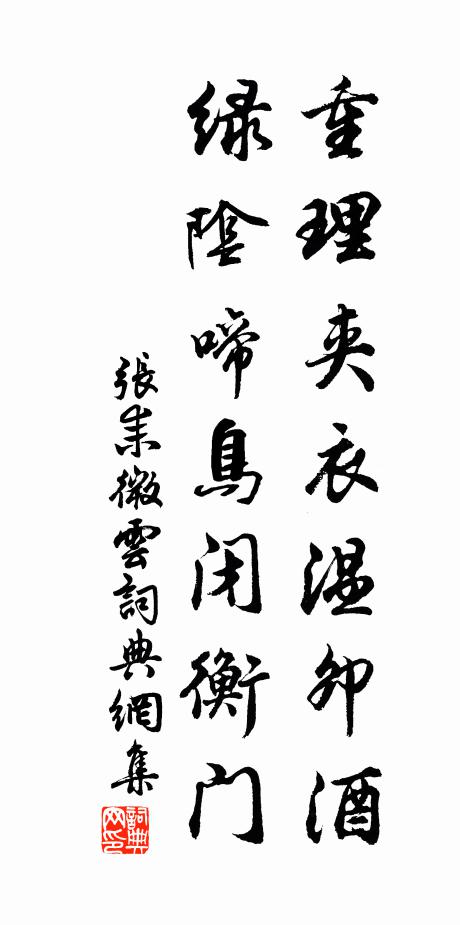 重理夹衣温卯酒
绿阴啼鳥闭衡门
張耒微雲詞典網集
詞典网印